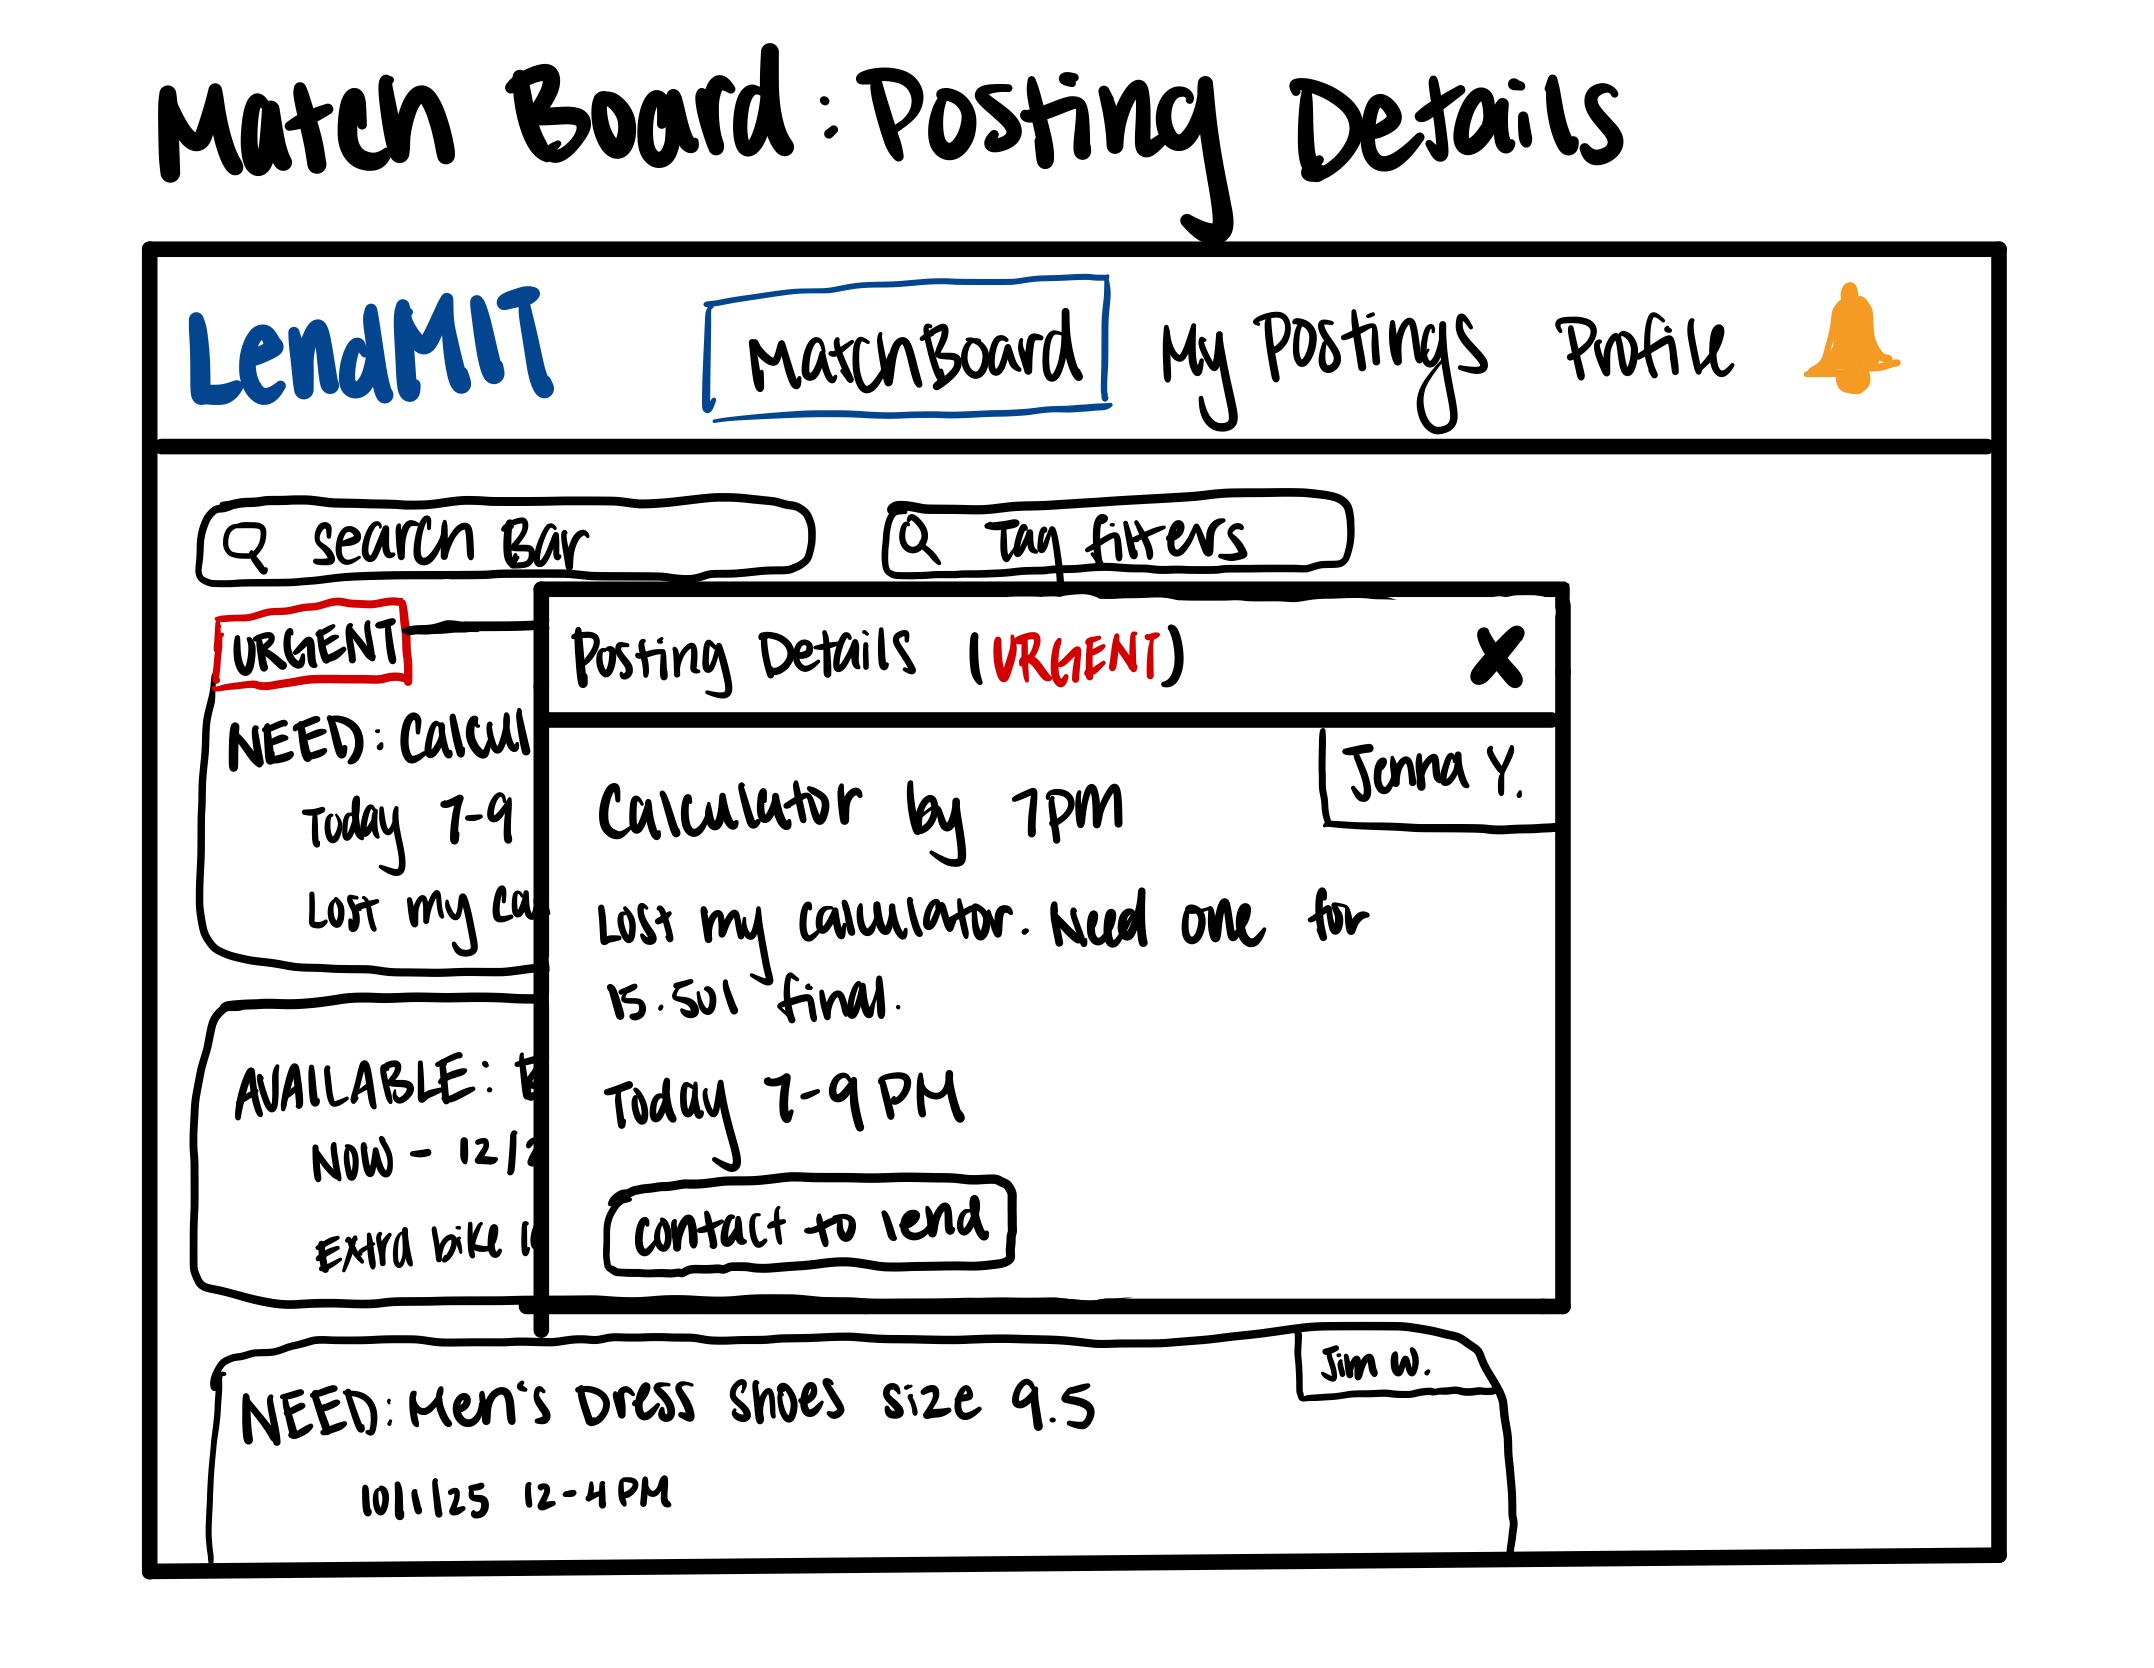 Match Board: Posting Details
LendMIT MatchBoard My Postings Profile
Search Bar Tag filters
URGENT
NEED: Calcul
Today 7-9
Lost my ca
Posting Details (URGENT)
Jenna Y.
Calculator by 7PM
Lost my calculator. Need one for
15.501 final.
Today 7-9 PM
contact to lend
AVAILABLE: B
NOW - 12/2
Extra bike
NEED: Men's Dress shoes size 9.5
Jim W.
10/1/25 12-4PM